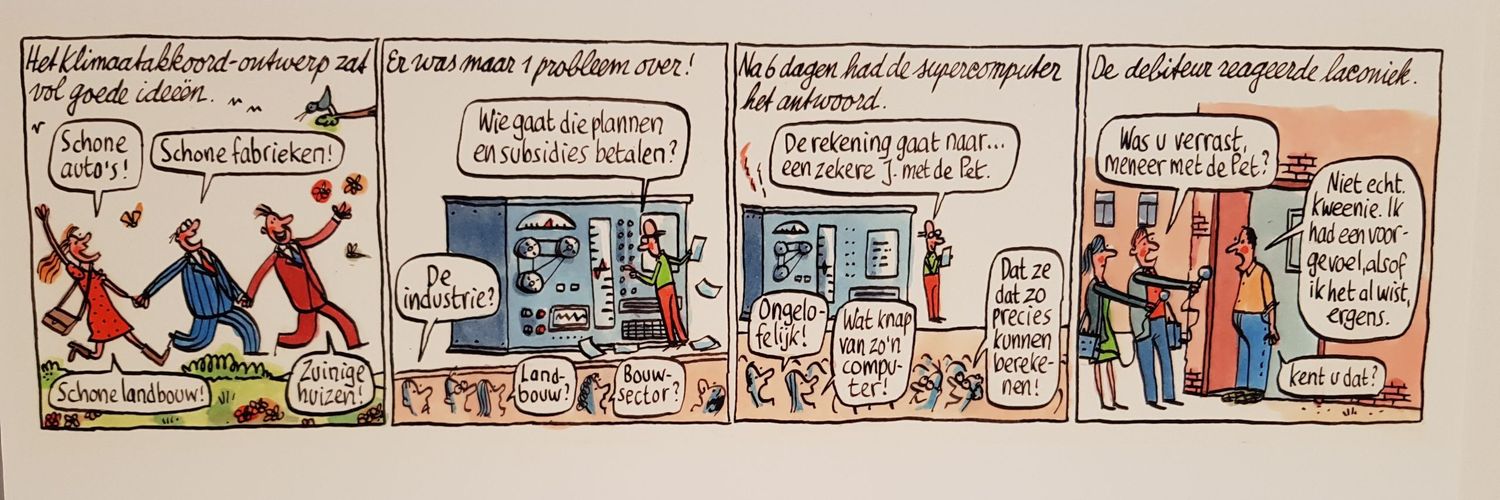 Het Klimaatakkoord-ontwerp zat
vol goede ideeën.
Schone
auto's!
Schone fabrieken!
Schone landbouw!
Zuinige
huizen!
Er was maar 1 probleem over!
Wie gaat die plannen
en subsidies betalen?
De
industrie?
Land-
bouw?
Bouw-
sector?
Na 6 dagen had de supercomputer
het antwoord.
De rekening gaat naar...
een zekere J. met de Pet.
Ongelo-
felijk!
Wat knap
van zo'n
compu-
ter!
Dat ze
dat zo
precies
kunnen
bereke-
nen!
De debiteur reageerde laconiek.
Was u verrast,
meneer met de Pet?
Niet echt.
Kweenie. Ik
had een voor-
gevoel, alsof
ik het al wist,
ergens.
kent u dat?